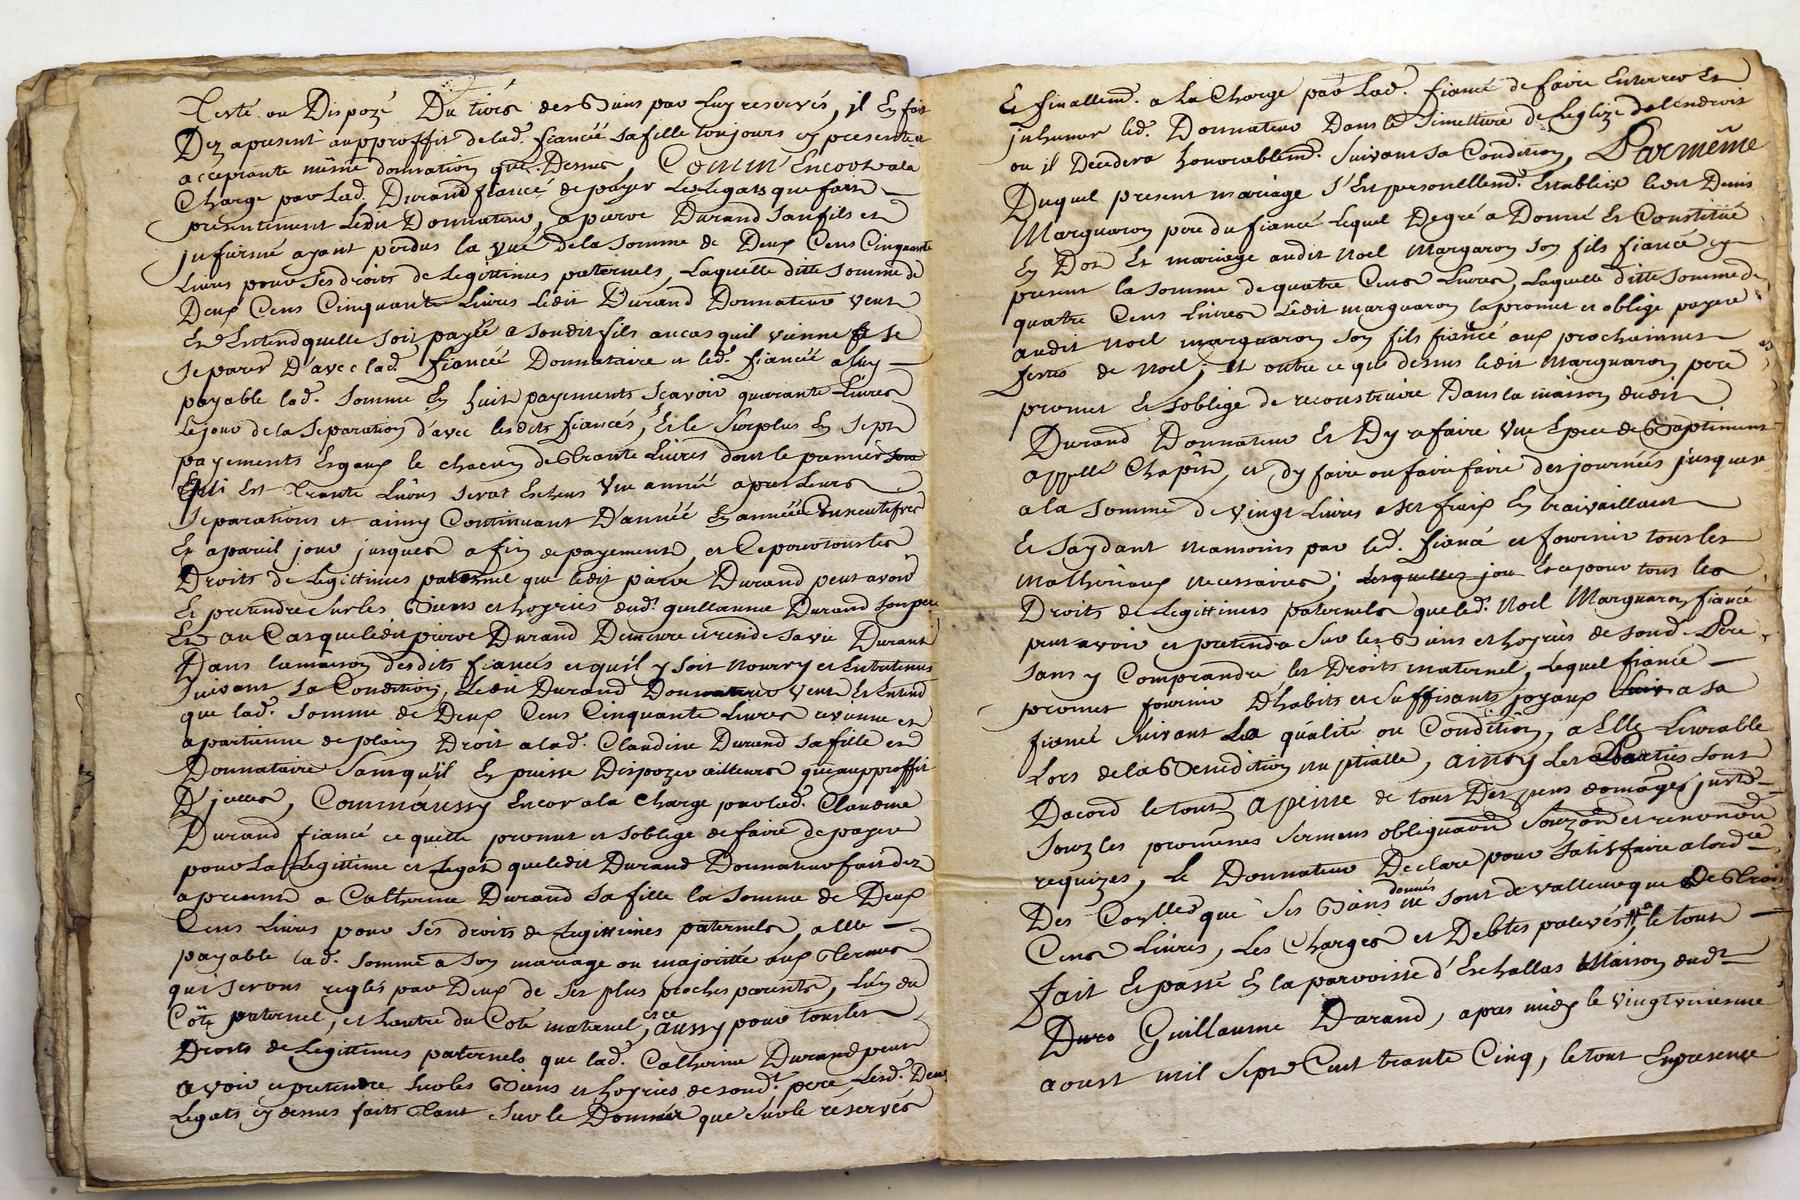 Testé ou Dispozé Du tiers des Biens par Luy reservés, il En fait
Dez apresent auproffit delad. fiancée safille toujours cy presente et
acceptante même donnation que Dessus, Comm'Encore ala
Charge par Lad. Durand fiancée de payer Les Legats que faict
presentement Ledit Donnateur, a pierre Durand sonfils et
jnfirme ayant perdus la vuë de la somme de Deux Cens Cinquante
Livres pour ses droits de Legittimes paternels, Laquelle ditte somme de
Deux Cens Cinquante Livres Ledit Durand Donnateur veut
Et Entend quelle soit payée a sondit fils aucas quil vienne a se
separer D'avec lad. fiancée Donnataire et led. fiancée a luy
payable lad. somme En huit payements scavoir quarante Livres
Lejour de la separation d'avec lesdits fiancés, Et le surplus En sept
payements Esgaux le chacun de Trante Livres dont le premier
qui Est Trante Livres serat Escheus Vne année apres Leurs
separations et ainsy Continuant D'année En année Consecutifves
Et apareil jour jusques a fin de payement, et Ce pour tous les
Droits de Legittimes paternel que ledit pierre Durand peut avoir
Et pretendre sur les Biens et hoyries dud. guillaume Durand son pere
Et au Cas que ledit pierre Durand Demeure sa vie Durant
Dans lamaison desdits fiancés et qu'il y soit nourry et Entretenus
suivant sa Condition, Ledit Durand Donnateur veut Et Entend
que lad. somme de Deux Cens Cinquante Livres revienne et
apartienne de plain Droit a lad. Claudine Durand sa fille et
Donnataire sans qu'il En puisse Dispozer ailleurs qu'auproffit
D'jcelles, Comm'aussy Encor ala Charge par lad. Claudine
Durand fiancé ce quelle promet et s'oblige de faire de payer
pour La Legittime et Legat queledit Durand Donnateur fait dez
apresent a Catherine Durand sa fille la somme de Deux
Cens Livres pour ses droits de Legittimes paternels, a elle
payable lad. somme a son mariage ou majorité aux Termes
qui seront reglés par Deux de ses plus proches parents, L'un du
Côté paternel, et l'autre du Coté maternel, et ce aussy pour tous les
Droits de Legittimes paternels que lad. Catherine Durand peut
avoir et pretendre sur les Biens et hoyries de sond. pere Lesd. Deux
Legats cy dessus faits Tant sur le Donnés que sur le réservés
Et finallemt. a La Charge par Lad. fiancé de faire Enterrer Et
jnhumer led. Donnateur Dans le simettiere de Leglize de lendroit
ou il Decedera honnorablemt. suivant sa Condition, Par même
Duquel present mariage s'Est personellemt. Establis ledit Denis
Marguaron pere du fiancé Lequel De gré a Donné Et Constitué
En Dot Et mariage audit Noel Margaron son fils fiancé cy
present la somme de quatre Cens Livres, Laquelle ditte somme de
quatre Cens Livres Ledit marguaron la promet et oblige payer
audit Noel marguaron son fils fiancé aux prochainnes
festes de Noel; Et outre ce que dessus ledit Marguaron pere
promet Et s'oblige de reconstruire Dans la maison dudit
Durand Donnateur Et D'y refaire Vne Espece de Baptiment
appellé Chapit, et d'y faire ou faire faire des journées jusques
a la somme de vingt Livres a ses fraix En travaillant
Et saydant neanmoins par led. fiancé et fournir tous les
matheriaux necessaires; Lesquelles jou Et ce pour tous les
Droits de Legittimes paternels que led. Noel Marguaron fiancé
peut avoir et pretendre sur les Biens et hoyries de sond. Pere
sans y Comprandre les Droits maternel, Lequel fiancé
promet fournir D'habits et suffisants joyaux a sa
fiancé suivant La qualité ou Condition, a Elle Livrable
Lors de la Benediction nuptialle, ainsy Les Parties sont
D'acord le tout apeine de tous Despens domages
souz les promesses sermens obligaons. et renonons.
requizes, Le Donnateur Declare pour satisfaire a lordce
Des que ses Biens donnés ne sont de valleur que De Trois
Cens Livres, Les Charges et Debtes le tout
fait Et passé En la parroisse d'Eschallas Maison dudt
Guillaume Durand, apres midy le vingt
aoust mil sept Cent trante Cinq, le tout En presence